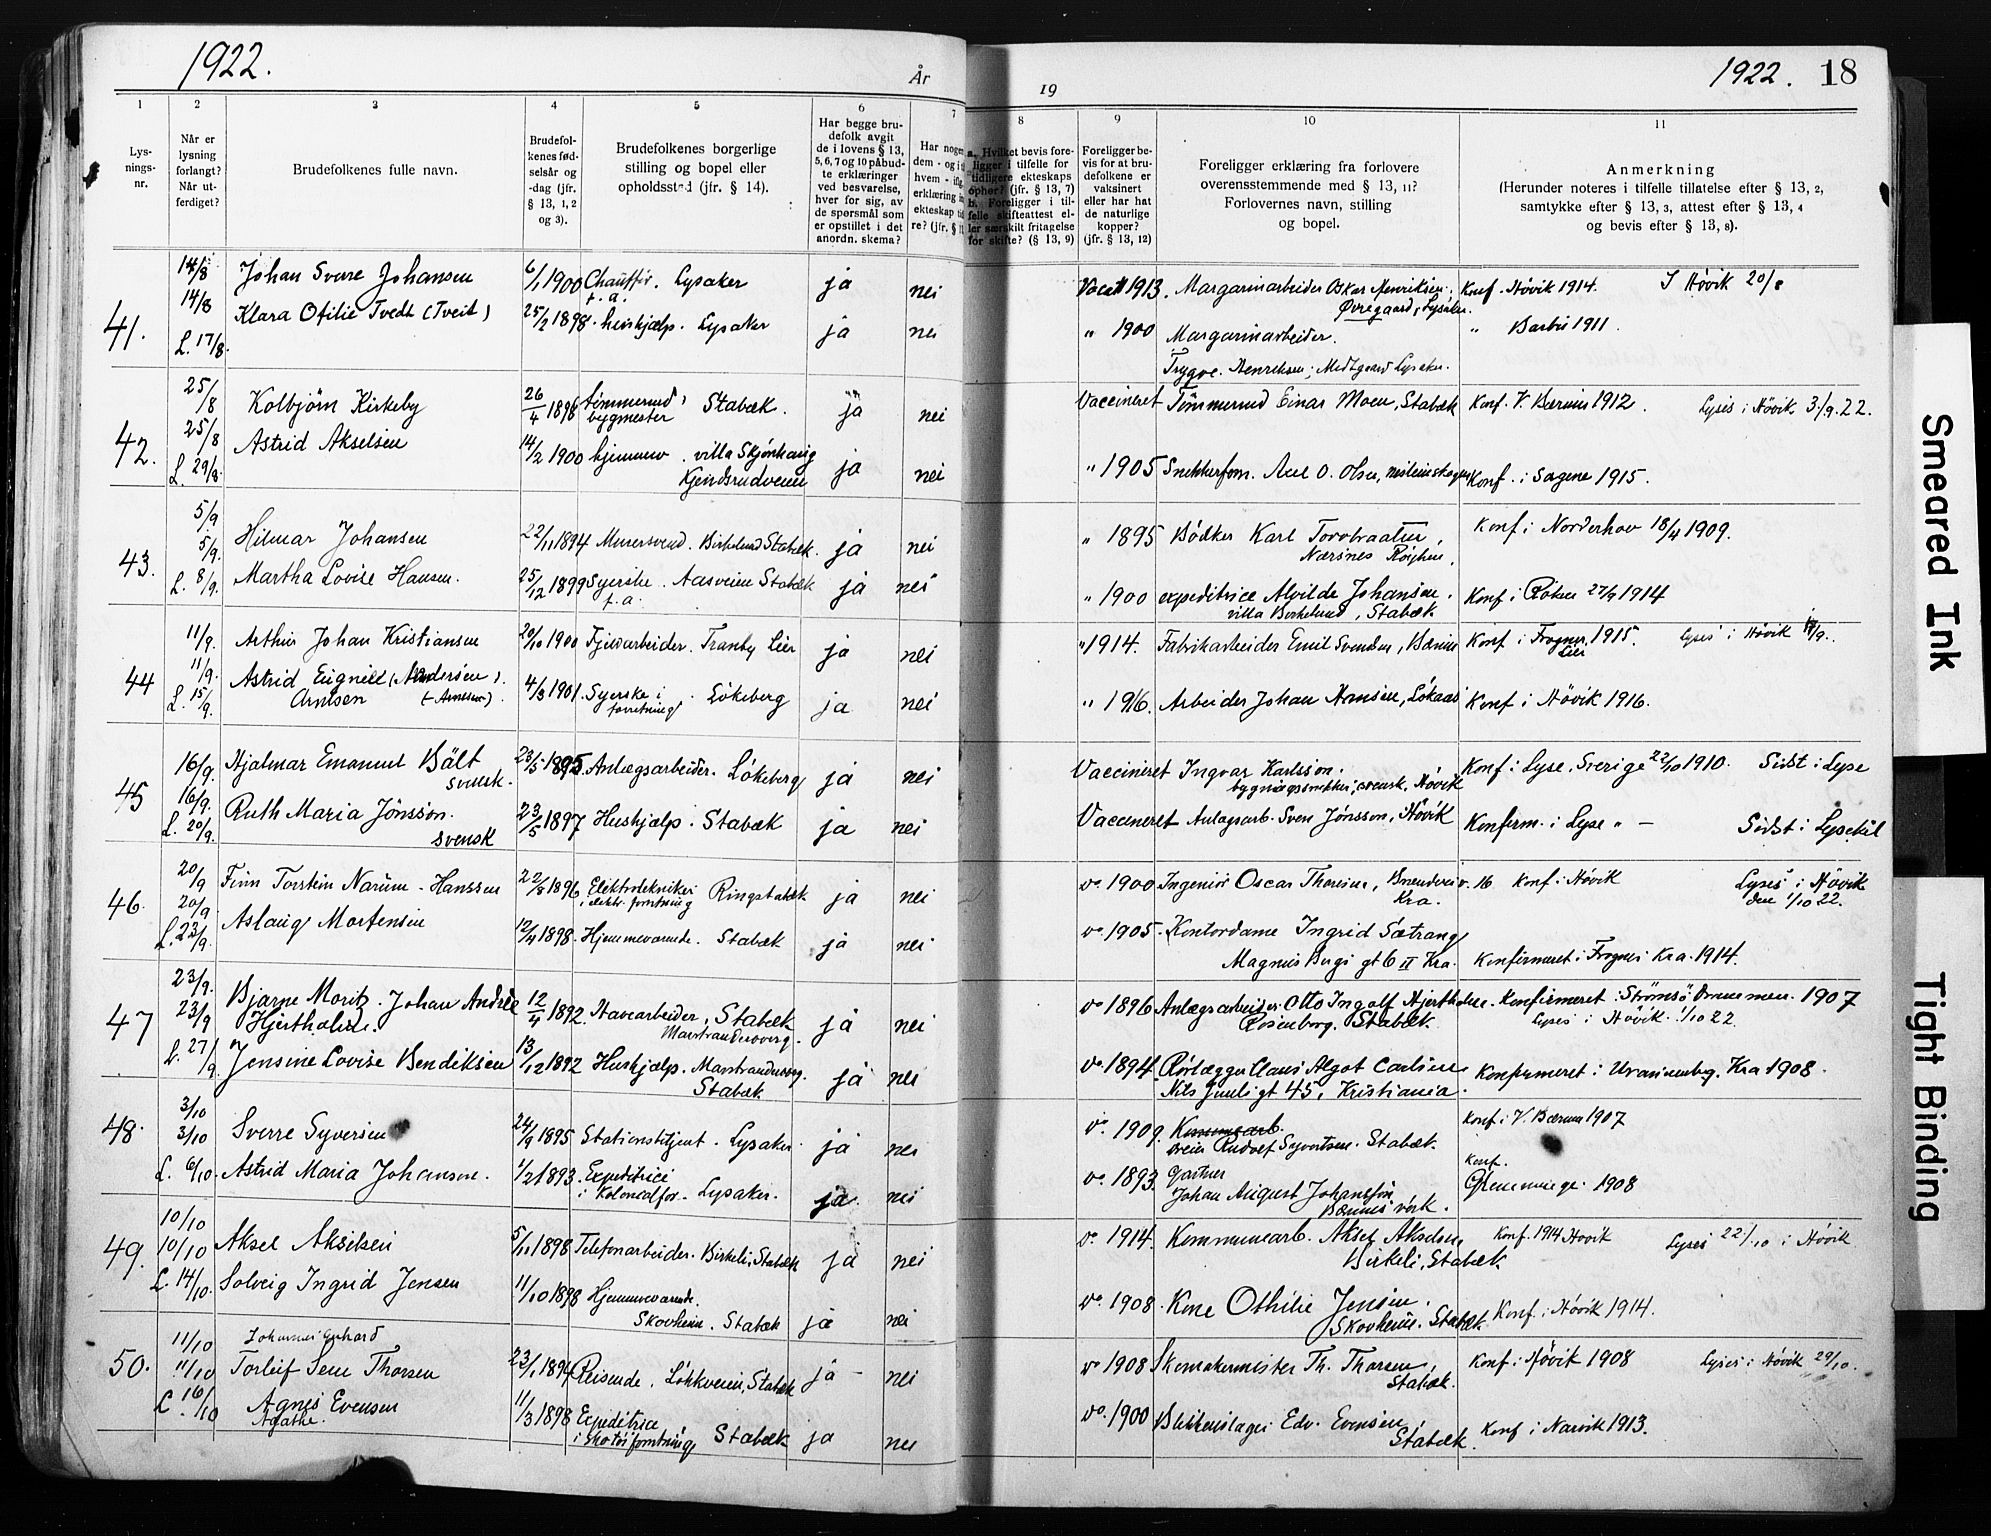 1922.
År
19
1922. 18
1
Lys-
nings-
nr.
2
Når er
lysning
forlangt?
Når ut-
ferdiget?
3
Brudefolkenes fulle navn.
4
Brudefol-
kenes fød-
selsår og
-dag (jfr.
§ 13, 1, 2
og 3).
5
Brudefolkenes borgerlige
stilling og bopel eller
opholdssted (jfr. § 14).
6
Har begge bru-
defolk avgit
de i lovens § 13,
5, 6, 7 og 10 påbud-
te erklæringer
ved besvarelse,
hver for sig, av
de spørsmål som
er opstillet i det
anordn. skema?
7
Har nogen
dem - og i ti
hvem - iflg.
erklæring in
ekteskap tid
re? (jfr. § 1
8
a. Hvilket bevis fore-
ligger i tilfelle for
tidligere ekteskaps
ophør? (jfr. § 13, 7)
b. Foreligger i til-
felle skifteattest el-
ler særskilt fritagelse
for skifte? (§ 13, 9)
9
Foreligger be-
vis for at bru-
defolkene er
vaksinert
eller har hat
de naturlige
kopper?
(jfr. § 13, 12)
10
Foreligger erklæring fra forlovere
overensstemmende med § 13, 11?
Forlovernes navn, stilling
og bopel.
11
Anmerkning
(Herunder noteres i tilfelle tillatelse efter § 13, 2,
samtykke efter § 13, 3, attest efter § 13, 4
og bevis efter § 13, 8).
41.
14/8 Johan Sverre Johansen 6/1 1900 Chauffør. Lysaker ja nei Vacc 1913. Margarinarbeider Oskar Henriksen. Konf. Høvik 1914. I Høvik 20/8
f.a. Øvregaard, Lysaker.
14/8 Klara Otilie Tvedt (Tveit) 25/2 1898. hushjælp. Lysaker ja nei " 1900 Margarinarbeider. " Barbu 1911.
L. 17/8. Trygve Henriksen, Lysaker.
42.
25/8 Kolbjörn Kirkeby 26/4 1896 tömmermd, bygmester Stabæk. ja nei Vaccineret Tömmermd Einar Moen, Stabæk Konf. V. Bærum 1912. Lyses i Høvik 3/9.22.
25/8 Astrid Akselsen 14/2 1900 hjemmev. villa Skjønhaug ja nei " 1905 Snekkerform. Axel O. Olsen, Konf. i Sagene 1915.
L. 29/8.
43.
5/9 Hilmar Johansen 22/11 1894 Murersvend. Birkelund Stabæk. ja nei " 1895 Bödker Karl Torvbraaten, Konf. i Norderhov 18/4 1909.
Nærsnes Röyken.
5/9. Martha Lovise Hansen. 25/12 1899 Syerske. Aasveien Stabæk ja nei " 1900 expeditrice Alvilde Johansen. Konf i Röken 27/9 1914
L. 8/9. f.a. villa Birkelund, Stabæk.
44
11/9. Arthur Johan Kristiansen 20/10 1900 Tranby Lier ja nei " 1914. Fabrikarbeider Emil Svendsen, Bærum Konf i Frogner, 1915. Lyses i Høvik
Lier
11/9. Astrid Eugnie (Andersen). 4/3 1901. Syerske i Lökeberg ja nei " 1916. Arbeider Johan Hansen, Lökaas Konf i Høvik 1916.
L. 15/9. Arntsen forretning
45
16/9. Hjalmar Emanuel Bält 23/5 1895. Anlægsarbeider. Lökeberg ja nei Vaccineret Ingvar Karlsson. Konf i Lyse, Sverige 22/10 1910. Sidst i Lyse
svensk. bygningssnekker, svensk, Høvik
16/9. Ruth Maria Jönsson. 23/5 1897 Hushjælp. Stabæk ja nei Vaccineret Anlagsarb. Sven Jönsson, Høvik Konferm. i Lyse " — Sidst i Lysekil
L. 20/9. svensk
46.
20/9 Finn Torstein Narum - Hanssen 22/8 1896. Elektrotekniker Ringstabæk ja nei vo. 1900 Ingeniör Oscar Thoresen, v. 16 Konf. i Høvik Lyses i Høvik
i elektr. forretning Kra. den 1/10 22.
20/9. Aslaug Mortensen 12/4 1898. Hjemmeværende. Stabæk ja nei vo. 1905. Kontordame Ingrid Sætrang
L. 23/9. Magnus Bergs gt 6 II Kra. Konfirmeret i Frogner Kra. 1914.
47
23/9. Bjarne Moritz Johan Andrèe 12/4 1892. Havearbeider, Stabæk ja nei vo 1896 Anlægsarbeider Otto Ingolf Hjertholm. Konfirmeret i Strömsö Drammen. 1907
23/9 Hjertholm. Rosenborg. Stabæk Lyses i Høvik. 1/10 22.
L. 27/9 Jensine Lovise Bendiksen 13/12 1892 Hushjælp. ja nei vo 1894. Rörlægger Claus Algot Carlsen Konfirmeret i Uranienborg, Kra 1908.
Stabæk Nils Juuls gt 45, Kristiania.
48.
3/10
3/10 Sverre Syversen 24/9 1895 Stationsbetjent. Lysaker. ja nei vo. 1909. Kommunearb. Konf i V. Bærum 1907
Rudolf Syvertsen. Stabæk.
L. 6/10. Astrid Maria Johansson. 1/2 1893. Expeditrice ja nei vo. 1893. Gartner Konf.
i Kolonialfor. Lysaker. Johan August Johansson Glemminge. 1908
Bærums værk.
49.
10/10
10/10 Aksel Akselsen 5/11 1898 Telefonarbeider. Birkeli, Stabæk ja nei vo. 1914. Kommunearb. Aksel Akselsen Konf. 1914 Høvik Lyses 22/10 i Høvik
Birkeli, Stabæk
L. 14/10. Solveig Ingrid Jensen 11/10 1898 Hjemmeværende. ja nei vo. 1908. Kone Othilie Jensen. Konf. i Høvik 1914.
Skovheim. Stabæk Skovheim. Stabæk
50.
11/10 Johannes Gerhard
11/10 Torleif Sem Thorsen 23/1 1894 Reisende, Lökkeveien, Stabæk ja nei vo 1908 Skomakermester Th. Thorsen, Konf. i Høvik 1908 Lyses i Høvik 29/10.
Stabæk.
L. 16/10 Agnes Evensen 11/3 1898 Expeditrice ja nei vo. 1900 Blikkenslager Edv. Evensen Konf i Narvik 1913.
Agathe. i Skotöiforretning Stabæk Stabæk.
Smeared Ink
Tight Binding